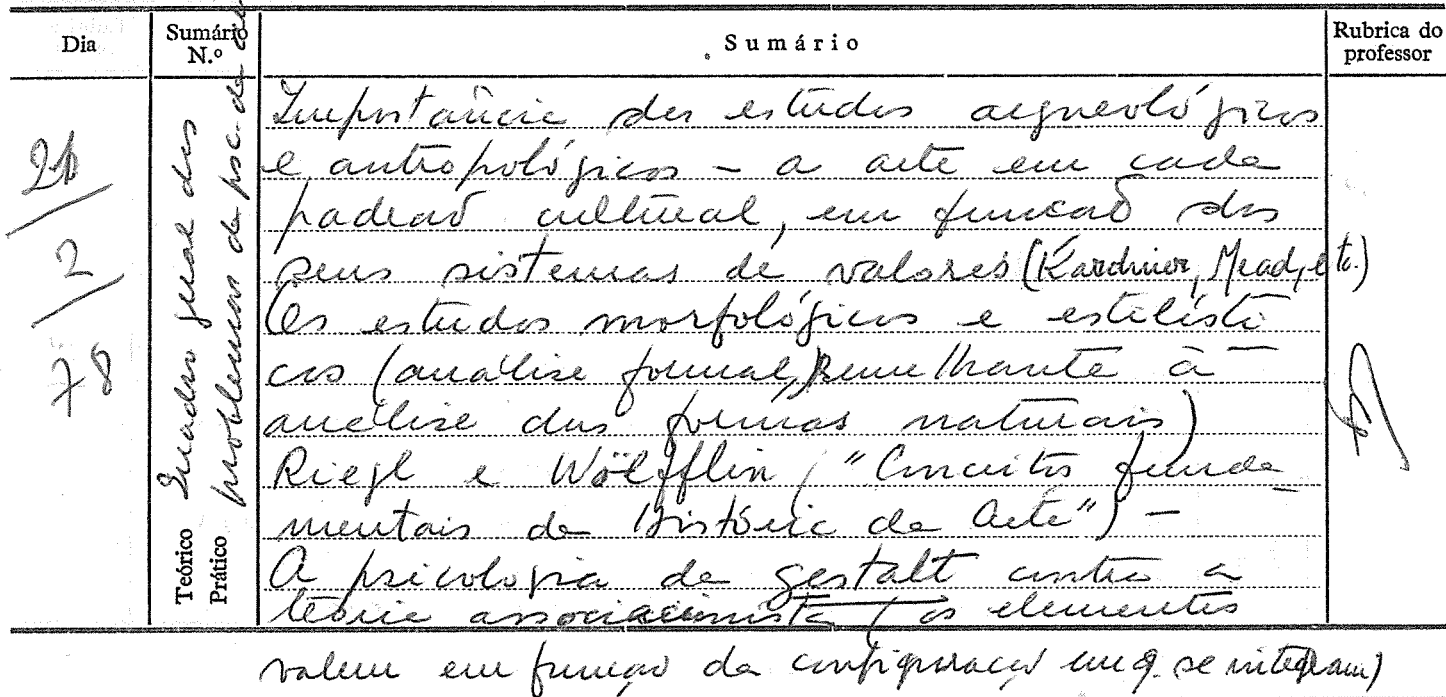 Dia
Sumário N.º
Sumário
Rubrica do professor
21/2/78
Teórico
Prático
Quadro geral dos
problemas da psic. da
Importância dos estudos arqueológicos
e antropológicos – a arte em cada
padrão cultural, em função dos
seus sistemas de valores (Kardiner, Mead, etc.)
Os estudos morfológicos e estilísti
cos (análise formal, semelhante à
análise das formas naturais)
Riegl e Wölfflin ("Conceitos funda-
mentais da História da Arte") –
A psicologia da gestalt contra a
teoria associacionista (os elementos
valem em função da configuração em q. se integram)